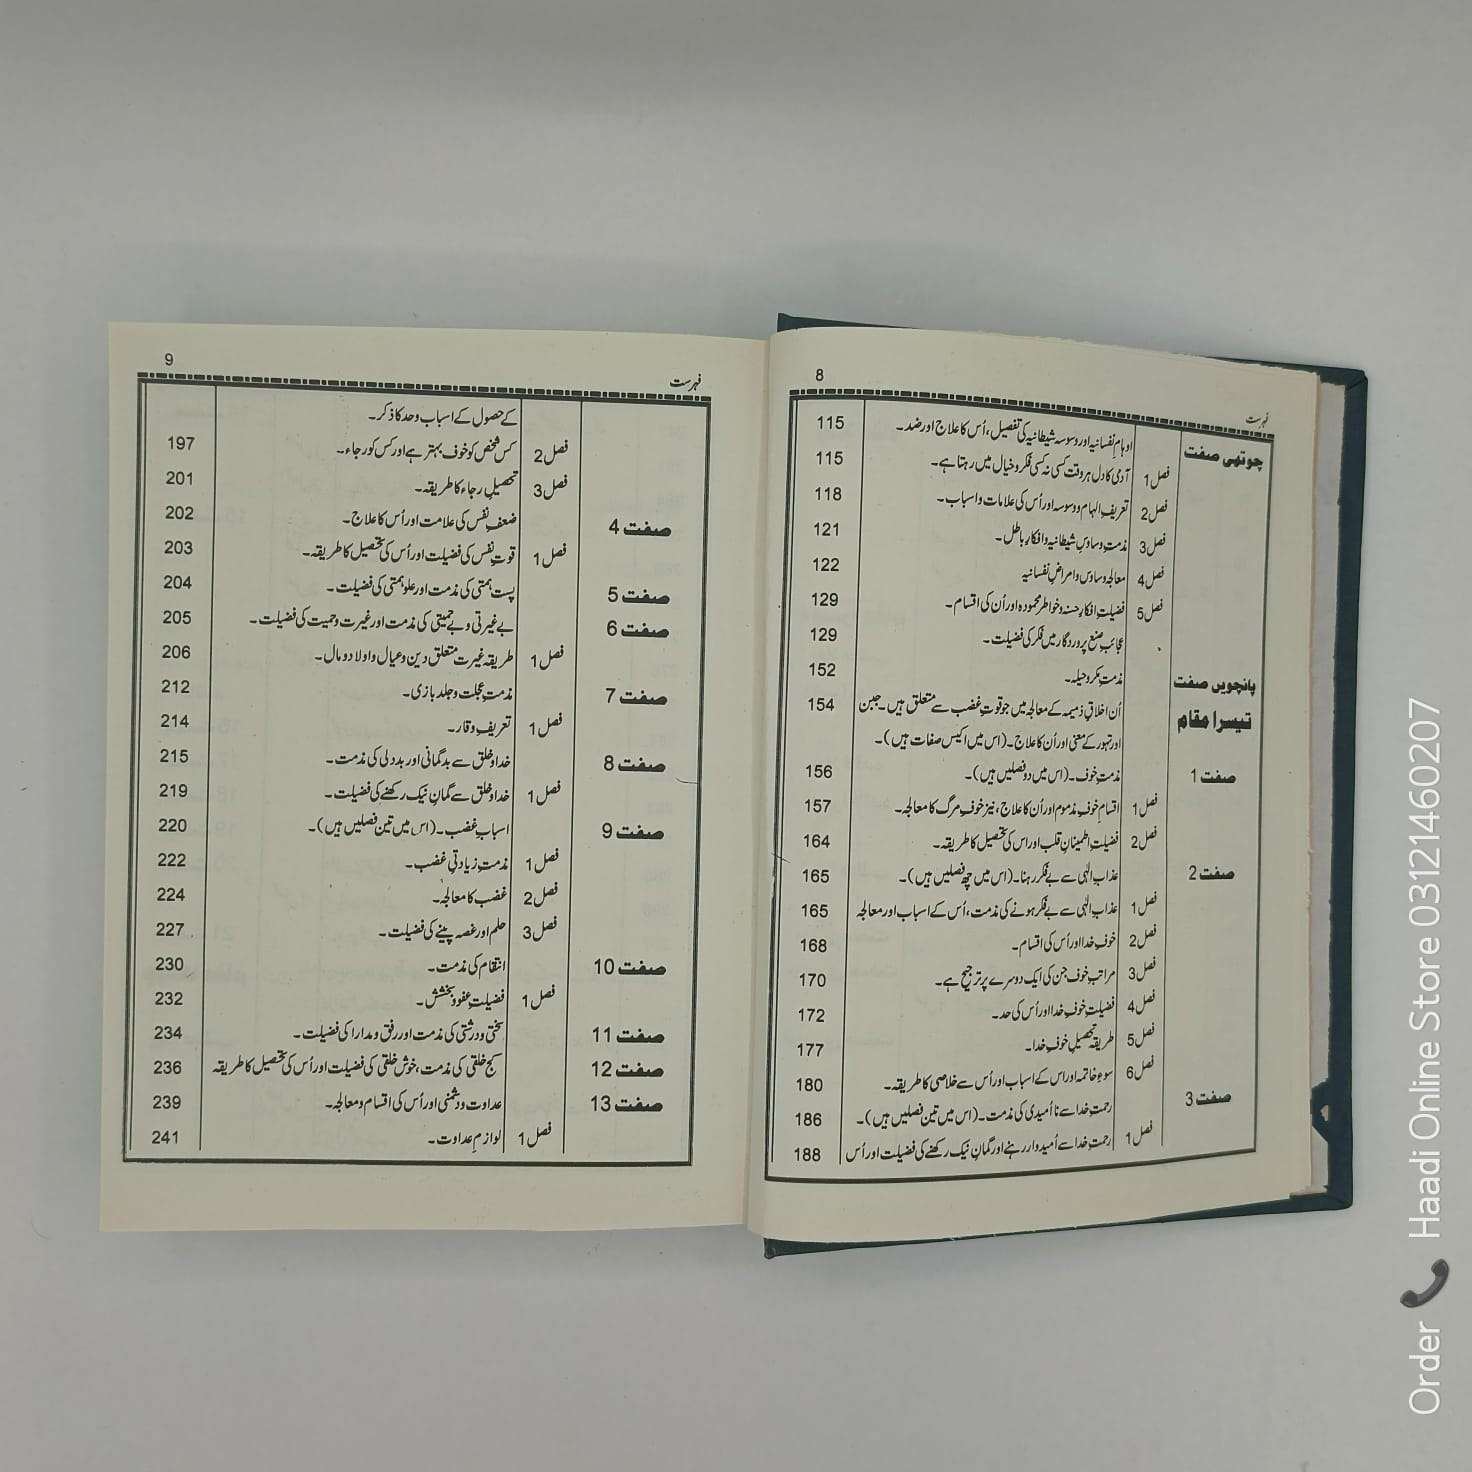 8
فہرست
چوتھی صفت اوہامِ نفسانیہ اور وسوسہ شیطانیہ کی تفصیل، اُس کا علاج اور ضد۔ 115
فصل 1 آدمی کا دل ہر وقت کسی نہ کسی فکر و خیال میں رہتا ہے۔ 115
فصل 2 تعریفِ الہام و وسوسہ اور اُس کی علامات و اسباب۔ 118
فصل 3 مذمتِ وساوسِ شیطانیہ و افکارِ باطل۔ 121
فصل 4 معالجہ وساوس و امراضِ نفسانیہ 122
فصل 5 فضیلتِ افکارِ حسنہ و خواطرِ محمودہ اور اُن کی اقسام۔ 129
عجائبِ صنعِ پروردگار میں فکر کی فضیلت۔ 129
پانچویں صفت مذمتِ مکر و حیلہ۔ 152
تیسرا مقام اُن اخلاقِ ذمیمہ کے معالجہ میں جو قوتِ غضب سے متعلق ہیں۔ جبن 154
اور تہور کے معنی اور اُن کا علاج۔ (اس میں اکیس صفات ہیں)۔
صفت 1 مذمتِ خوف۔ (اس میں دو فصلیں ہیں)۔ 156
فصل 1 اقسامِ خوفِ مذموم اور اُن کا علاج، نیز خوفِ مرگ کا معالجہ۔ 157
فصل 2 فضیلتِ اطمینانِ قلب اور اس کی تحصیل کا طریقہ۔ 164
صفت 2 عذابِ الٰہی سے بے فکر رہنا۔ (اس میں چھ فصلیں ہیں)۔ 165
فصل 1 عذابِ الٰہی سے بے فکر ہونے کی مذمت، اُس کے اسباب اور معالجہ 165
فصل 2 خوفِ خدا اور اُس کی اقسام۔ 168
فصل 3 مراتبِ خوف جن کی ایک دوسرے پر ترجیح ہے۔ 170
فصل 4 فضیلتِ خوفِ خدا اور اُس کی حد۔ 172
فصل 5 طریقہ تحصیلِ خوفِ خدا۔ 177
فصل 6 سوءِ خاتمہ اور اس کے اسباب اور اُس سے خلاصی کا طریقہ۔ 180
صفت 3 رحمتِ خدا سے نا اُمیدی کی مذمت۔ (اس میں تین فصلیں ہیں)۔ 186
فصل 1 رحمتِ خدا سے اُمیدوار رہنے اور گمانِ نیک رکھنے کی فضیلت اور اُس 188
9
فہرست
کے حصول کے اسباب و حد کا ذکر۔
فصل 2 کس شخص کو خوف بہتر ہے اور کس کو رجاء۔ 197
فصل 3 تحصیلِ رجاء کا طریقہ۔ 201
صفت 4 ضعفِ نفس کی علامت اور اُس کا علاج۔ 202
فصل 1 قوتِ نفس کی فضیلت اور اُس کی تحصیل کا طریقہ۔ 203
صفت 5 پست ہمتی کی مذمت اور علو ہمتی کی فضیلت۔ 204
صفت 6 بے غیرتی و بے حمیتی کی مذمت اور غیرت و حمیت کی فضیلت۔ 205
فصل 1 طریقہ غیرت متعلق دین و عیال و اولاد و مال۔ 206
صفت 7 مذمتِ عجلت و جلد بازی۔ 212
فصل 1 تعریفِ وقار۔ 214
صفت 8 خدا و خلق سے بدگمانی اور بد دلی کی مذمت۔ 215
فصل 1 خدا و خلق سے گمانِ نیک رکھنے کی فضیلت۔ 219
صفت 9 اسبابِ غضب۔ (اس میں تین فصلیں ہیں)۔ 220
فصل 1 مذمتِ زیادتیِ غضب۔ 222
فصل 2 غضب کا معالجہ۔ 224
فصل 3 حلم اور غصہ پینے کی فضیلت۔ 227
صفت 10 انتقام کی مذمت۔ 230
فصل 1 فضیلتِ عفو و بخشش۔ 232
صفت 11 سختی و درشتی کی مذمت اور رفق و مدارا کی فضیلت۔ 234
صفت 12 کج خلقی کی مذمت، خوش خلقی کی فضیلت اور اُس کی تحصیل کا طریقہ 236
صفت 13 عداوت و دشمنی اور اُس کی اقسام و معالجہ۔ 239
فصل 1 لوازمِ عداوت۔ 241
Order 📞 Haadi Online Store 03121460207